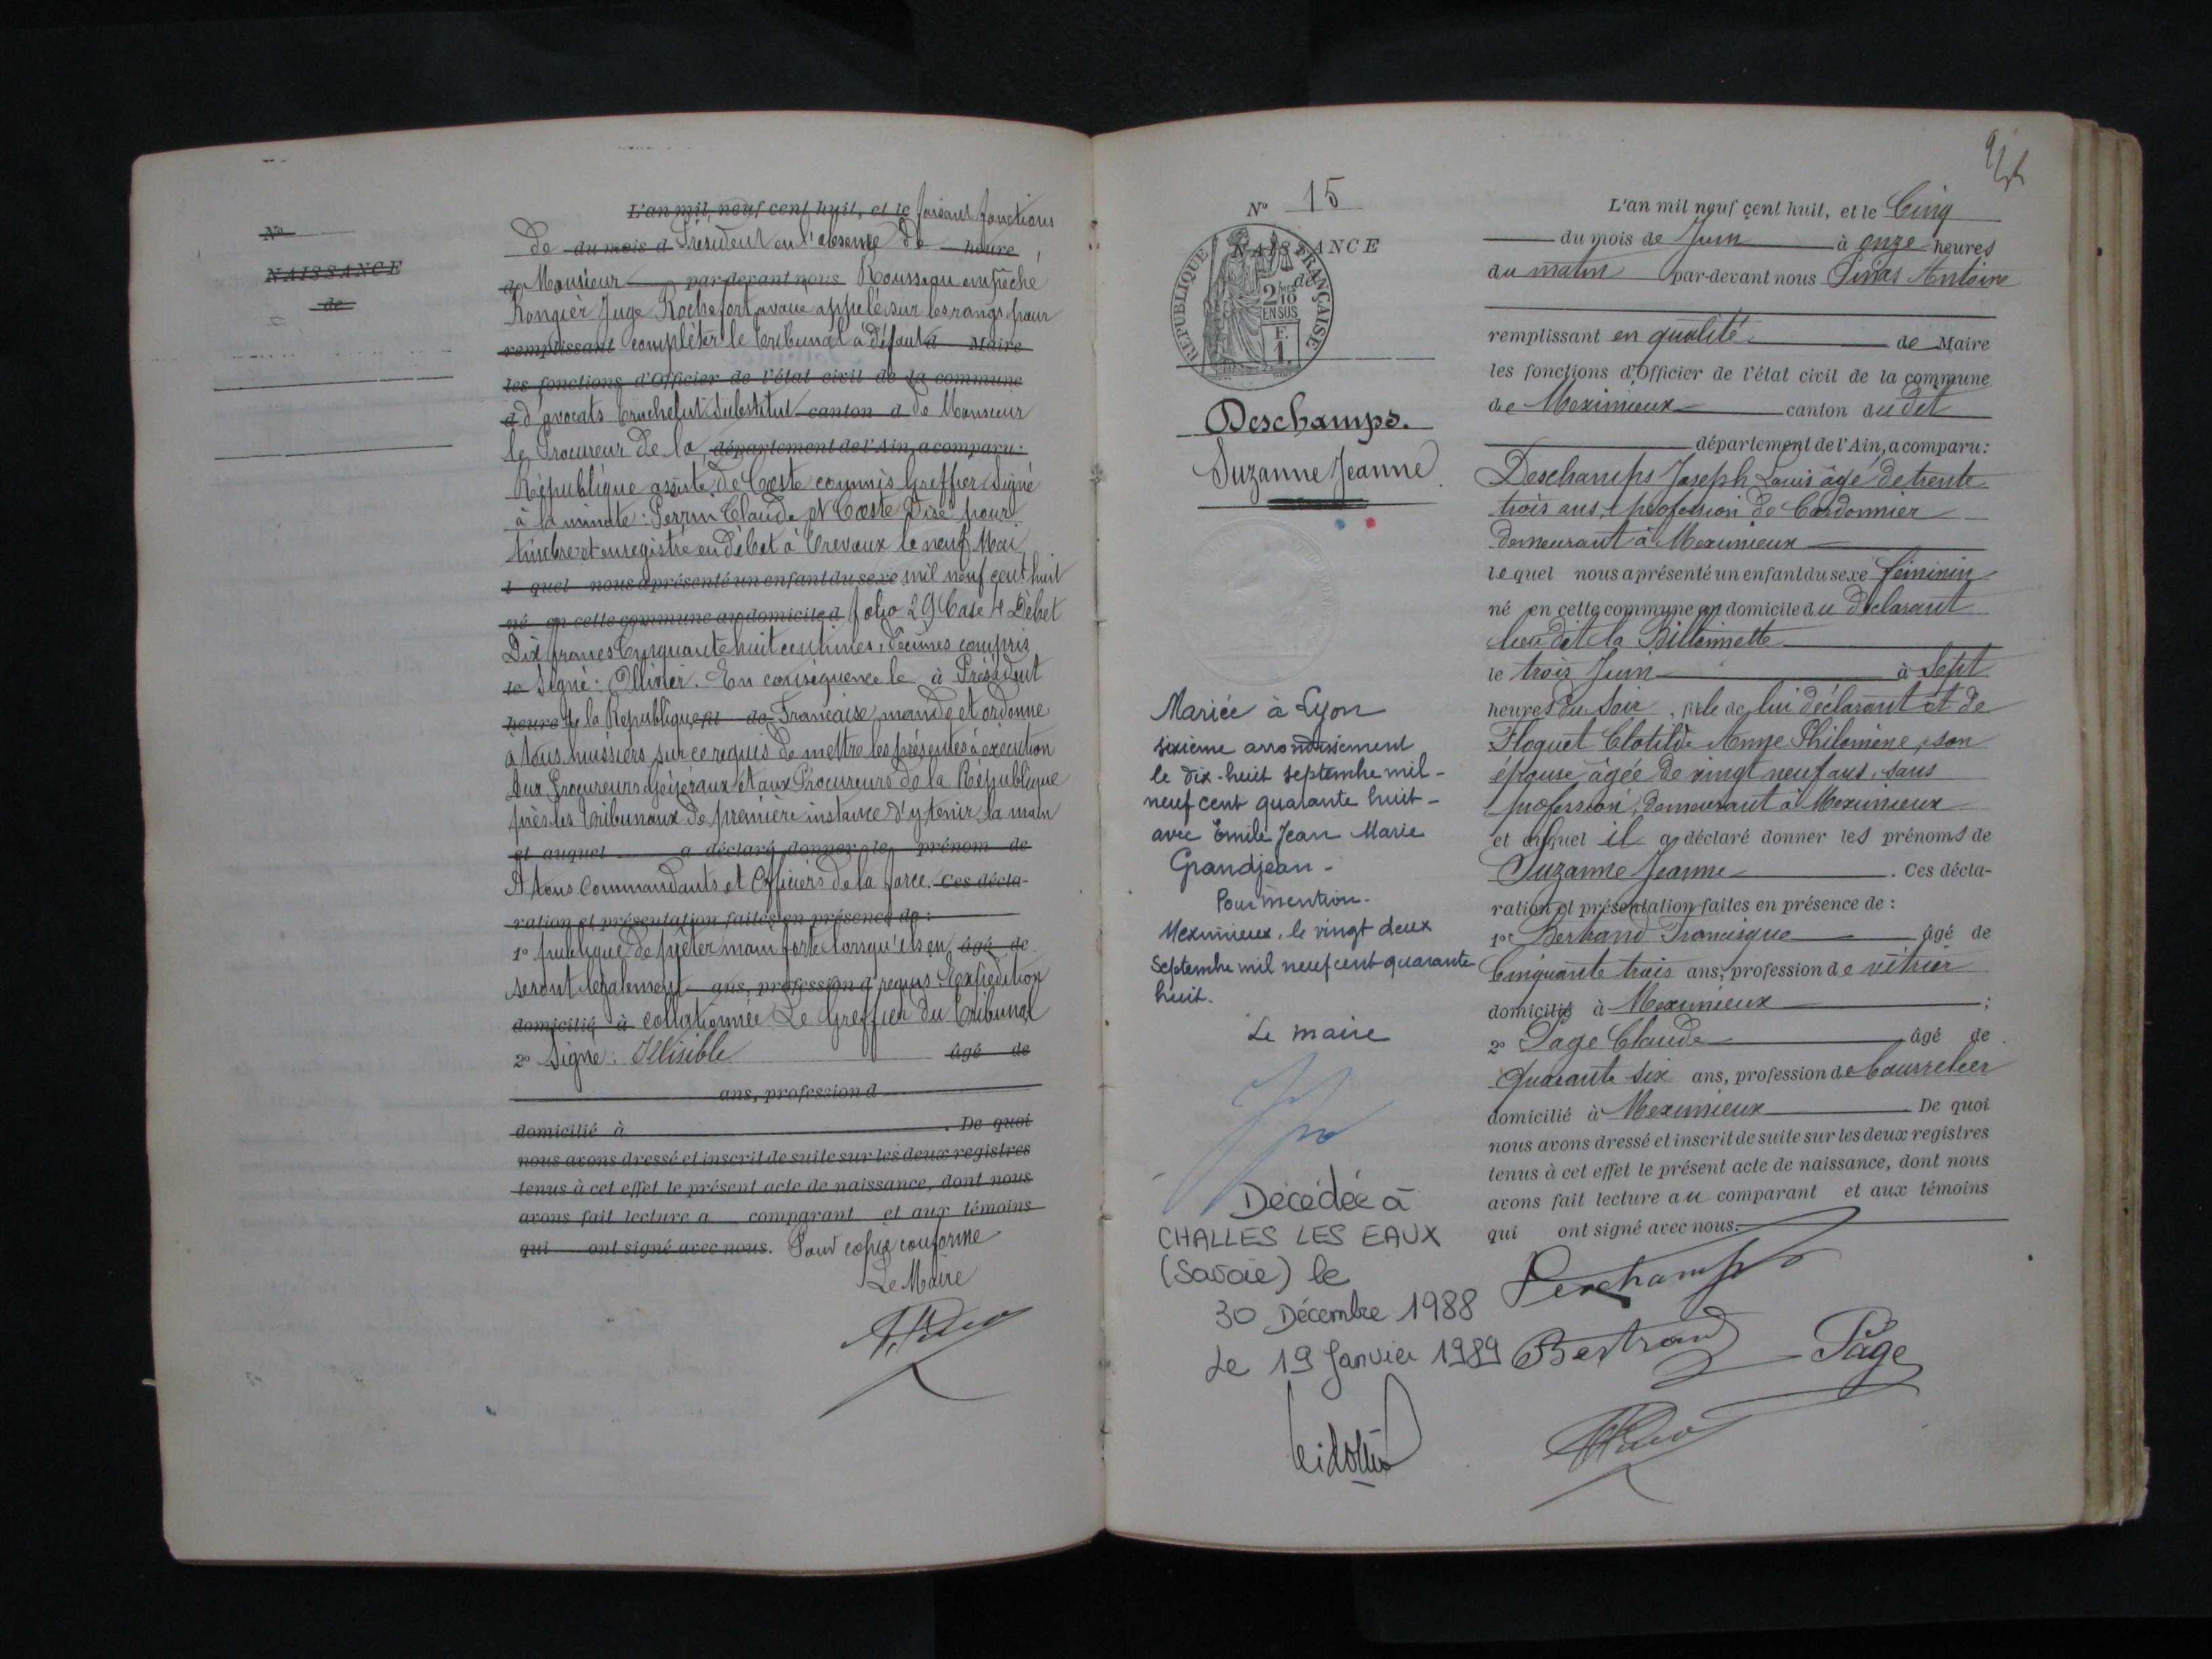 N°
NAISSANCE
de
L'an mil neuf cent huit, et le faisant fonctions
de du mois d Président en l'absence de heure
d Monsieur par-devant nous Rousseau empêché
Rongier Juge Rochefort avoué appelé sur les rangs pour
remplissant compléter le tribunal à défaut d Maire
les fonctions d'Officier de l'état civil de la commune
d d'avocats Cruchelut Substitut canton d de Monsieur
le Procureur de la département de l'Ain, a comparu:
République assisté de Coste commis Greffier Signé
à la minute: Perrin Claude et Coste Visé pour
timbre et enregistré en débet à Trevoux le neuf Mai
l quel nous a présenté un enfant du sexe mil neuf cent huit
né en cette commune au domicile d folio 29 Case 4 Débet
Dix francs Cinquante huit centimes, décimes compris
le Signé: Ollivier. En conséquence le à Président
heure de la République fil de Française mande et ordonne
a tous huissiers sur ce requis de mettre les présentes à exécution
Aux Procureurs Généraux et aux Procureurs de la République
près les tribunaux de première instance d'y tenir la main
et auquel a déclaré donner le prénom de
A tous Commandants et Officiers de la force. Ces décla-
ration et présentation faites en présence de:
1° publique de prêter main forte lorsqu'ils en âgé de
seront légalement ans, profession d requis. Expédition
domicilié à collationnée Le Greffier du tribunal
2° Signé: Illisible âgé de
ans, profession d
domicilié à . De quoi
nous avons dressé et inscrit de suite sur les deux registres
tenus à cet effet le présent acte de naissance, dont nous
avons fait lecture a comparant et aux témoins
qui ont signé avec nous. Pour copie conforme
Le Maire
N° 15
NAISSANCE
de
RÉPUBLIQUE FRANÇAISE
2/10
EN SUS
F.
1.
Deschamps.
Suzanne Jeanne.
Mariée à Lyon
sixième arrondissement
le dix-huit septembre mil-
neuf cent quarante huit-
avec Emile Jean Marie
Grandjean-
Pour mention-
Meximieux, le vingt deux
Septembre mil neuf cent quarante
huit.
Le maire
Décédée à
CHALLES LES EAUX
(Savoie) le
30 Décembre 1988
Le 19 Janvier 1989
L'an mil neuf cent huit, et le Cinq
du mois de Juin à onze heures
du matin par-devant nous Antoine
remplissant en qualité de Maire
les fonctions d'Officier de l'état civil de la commune
de Meximieux canton du dit
département de l'Ain, a comparu:
Deschamps Joseph Louis âgé de trente
trois ans, profession de Cordonnier
demeurant à Meximieux
lequel nous a présenté un enfant du sexe féminin
né en cette commune au domicile du déclarant
lieu dit la
le trois Juin à Sept
heures du Soir, fille de lui déclarant et de
Floquet Clotilde Anne Philomène, son
épouse âgée de vingt neuf ans, sans
profession, demeurant à Meximieux
et auquel il a déclaré donner les prénoms de
Suzanne Jeanne . Ces décla-
ration et présentation faites en présence de:
1° Bertrand Francisque âgé de
Cinquante trois ans, profession de vitrier
domicilié à Meximieux ;
2° Page Claude âgé de
Quarante six ans, profession de bourrelier
domicilié à Meximieux De quoi
nous avons dressé et inscrit de suite sur les deux registres
tenus à cet effet le présent acte de naissance, dont nous
avons fait lecture au comparant et aux témoins
qui ont signé avec nous.
Deschamps
Bertrand Page